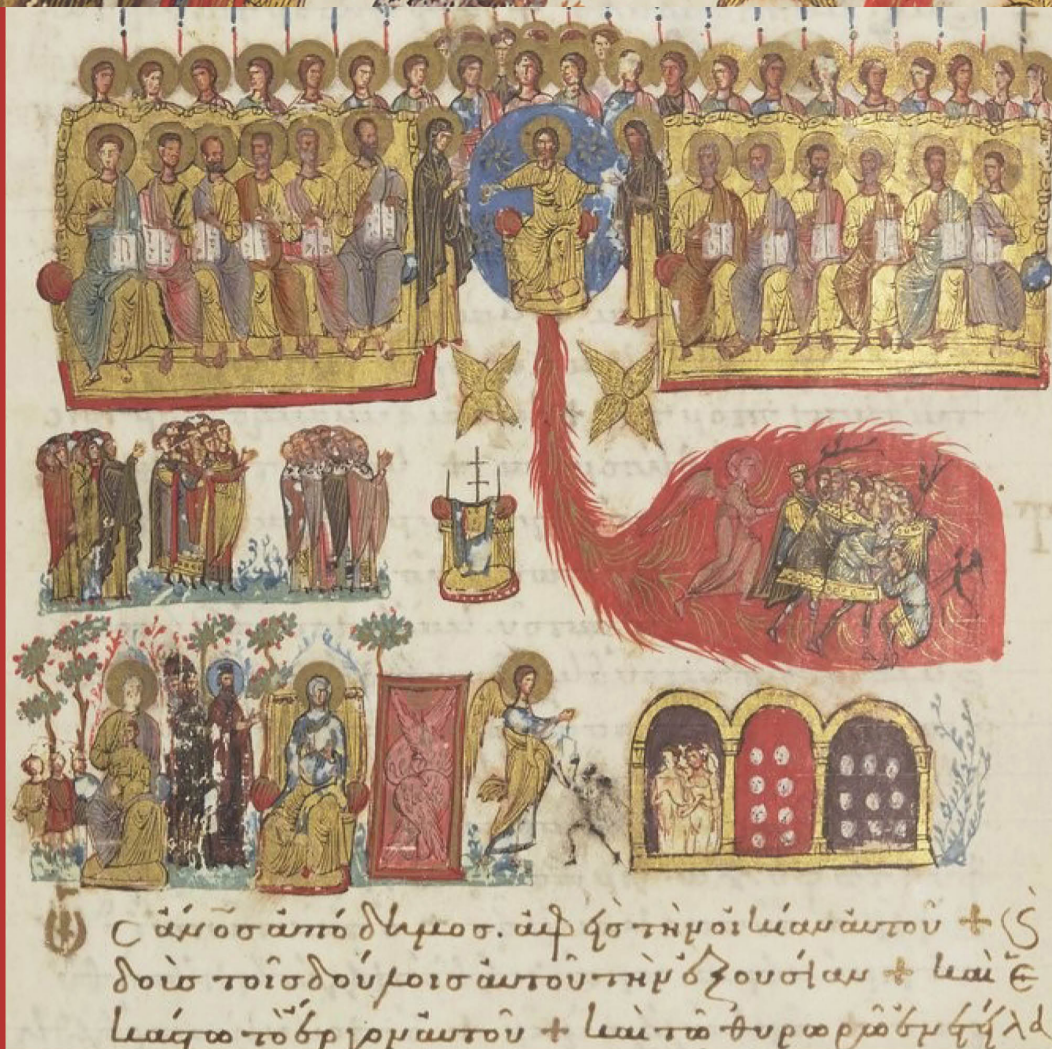 Ὡς ἄνος ἀπόδημος. ἀφεὶς τὴν οἰκίαν αὐτοῦ + ϗ
δοὺς τοῖς δούλοις αὐτοῦ τὴν ἐξουσίαν + καὶ ἑ
κάστω τὸ ἔργον αὐτοῦ + καὶ τῶ θυρωρῶ ἐνετείλα